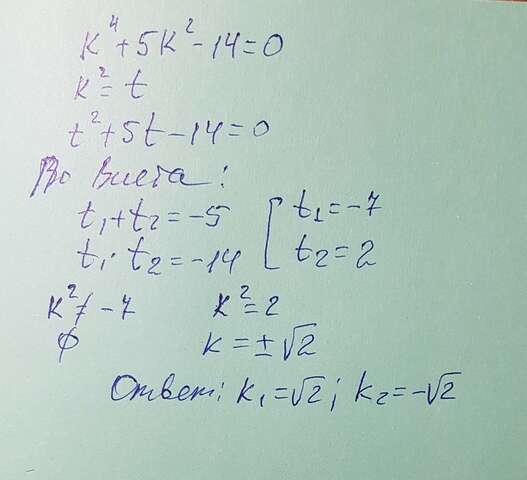 k⁴+5k²-14=0
k²=t
t²+5t-14=0
По Виета:
t₁+t₂=-5 [ t₁=-7
t₁·t₂=-14 [ t₂=2
k²≠-7 k²=2
∅ k=±√2
Ответ: k₁=√2; k₂=-√2